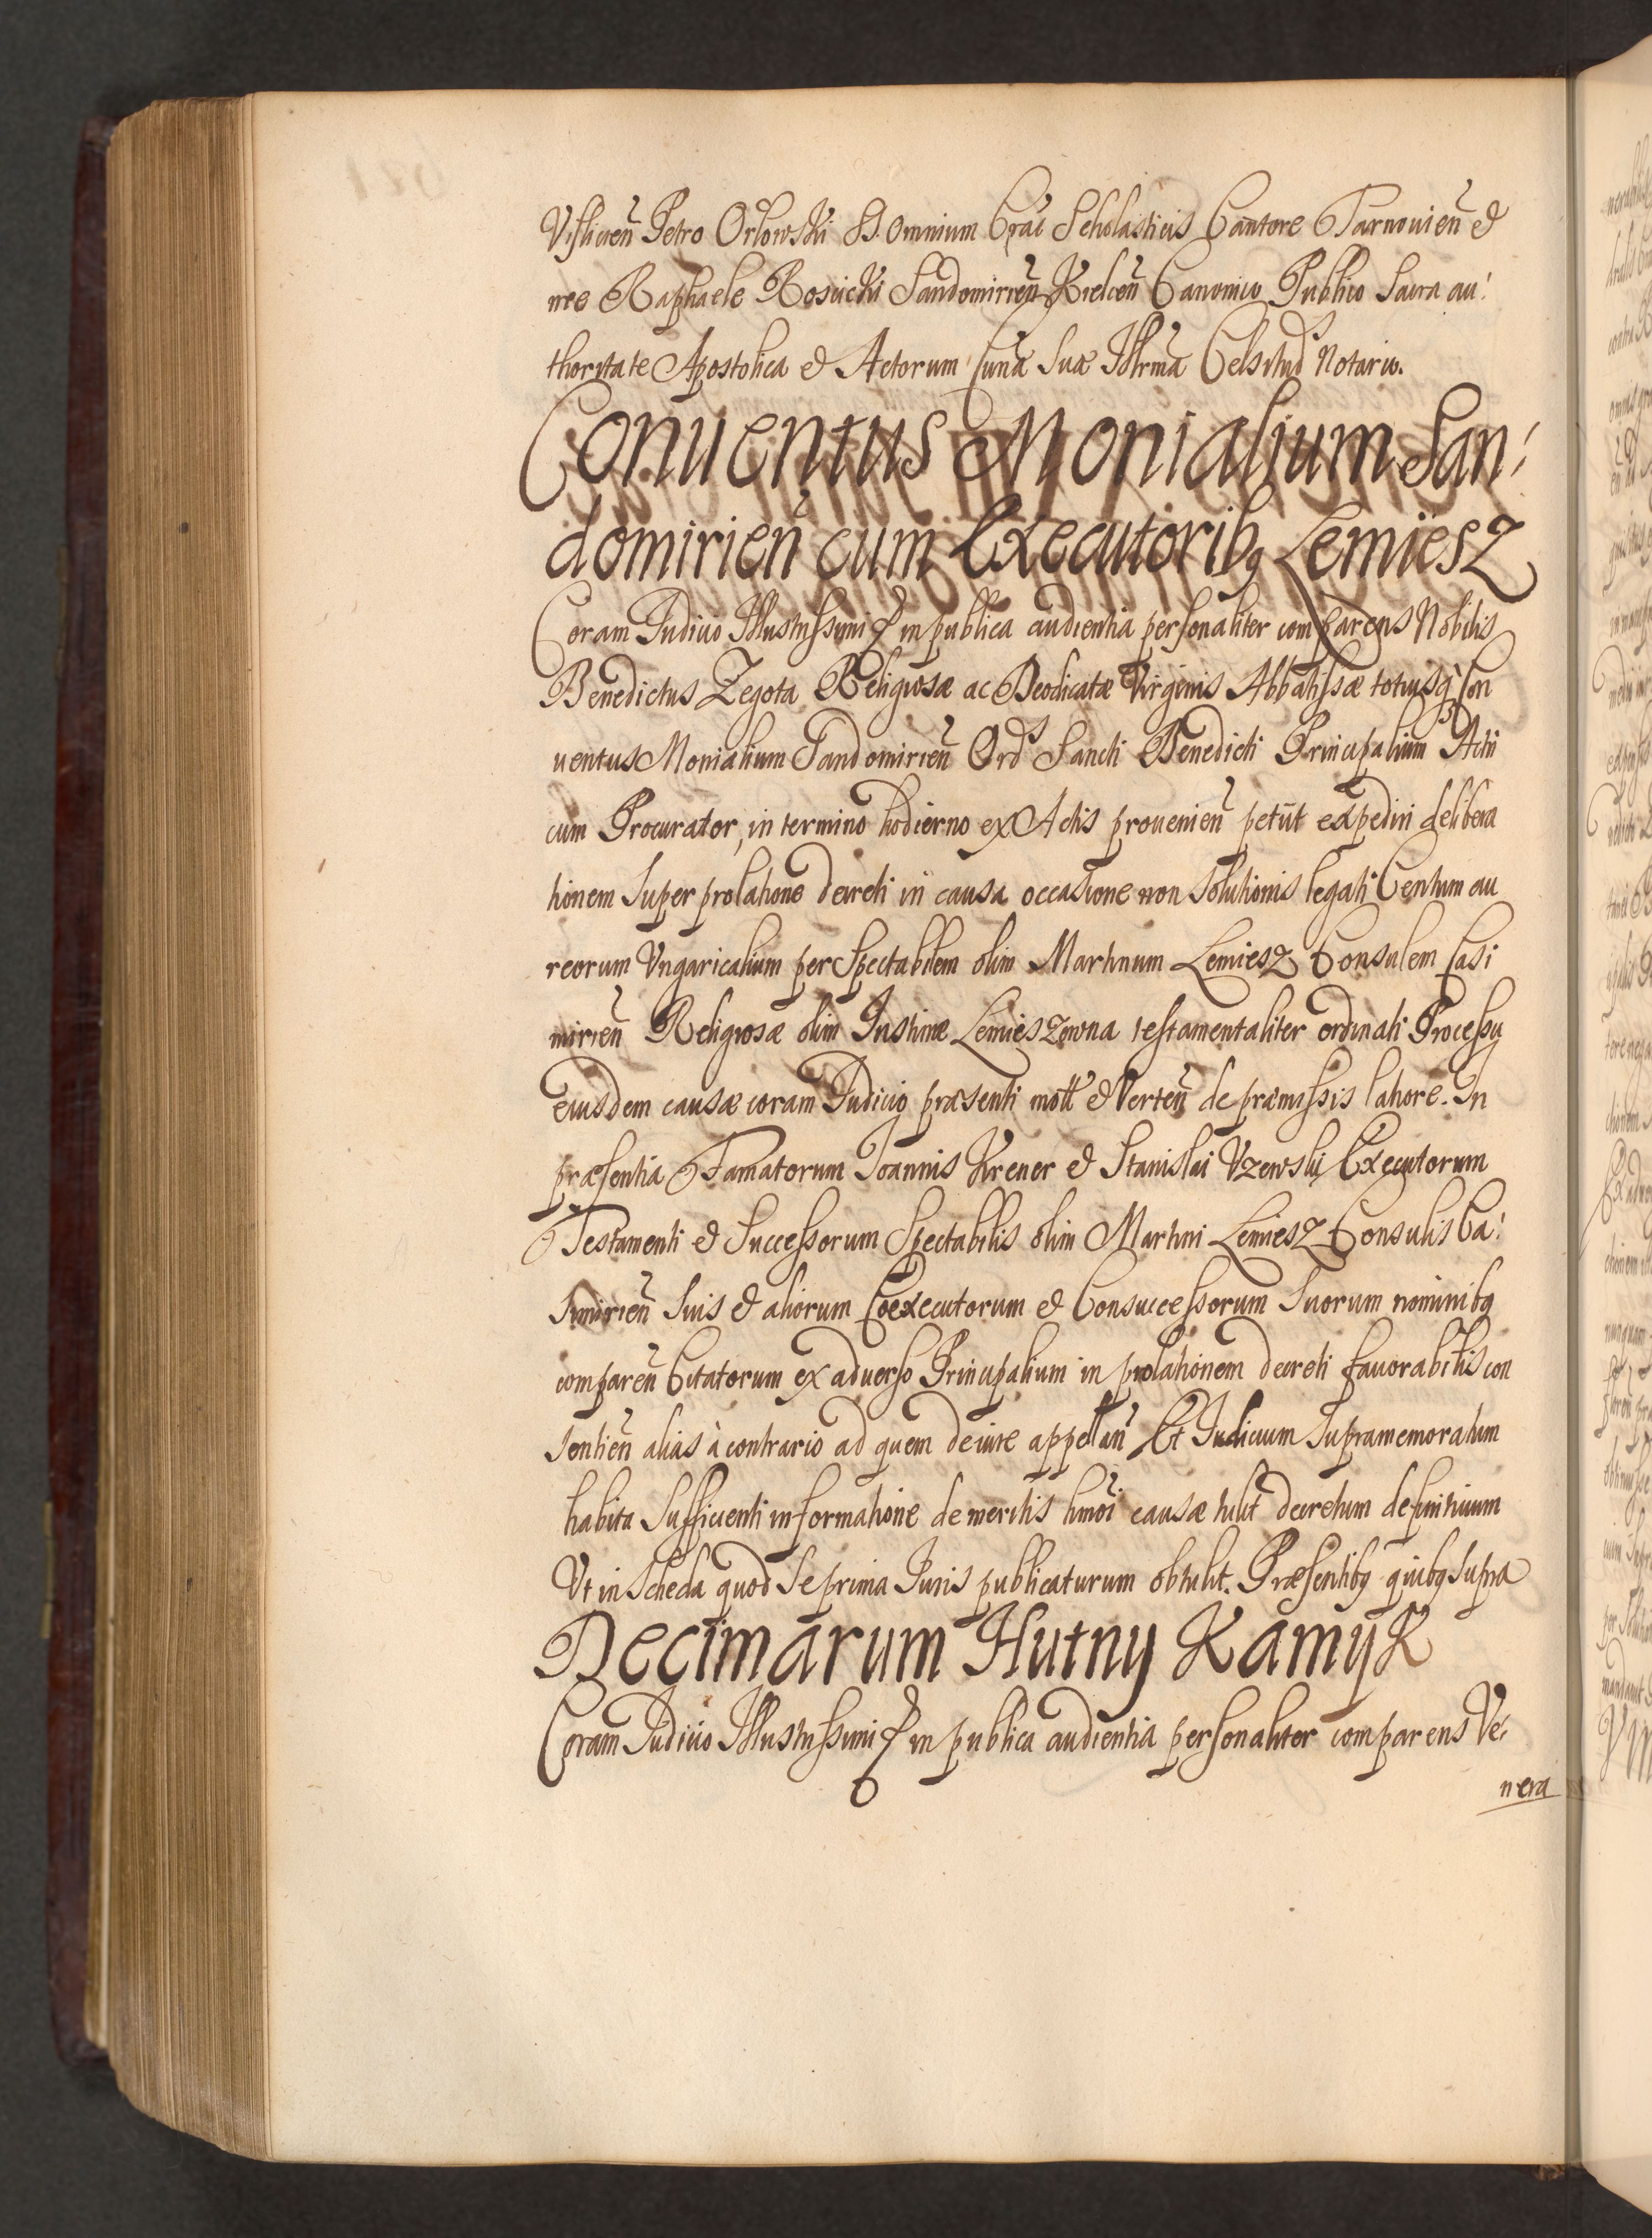 Vislicien̄ Petro Orłowski SS. Omnium Crac̄ Scholasticis Cantore Tarnovien̄ &
mee Raphaele Rosiicki Sandomirien̄ Kielcen̄ Canonico Publico Sacra au:
thoritate Apostolica & Actorum Sunæ Suæ Illrmæ Celsitud̄s Notario.
Conuentus Monialium San:
domirien̄ cum Executorib9 Lemiesz
Coram Iudicio Illustrissimi & in publica audientia personaliter comparens Nobilis
Benedictus Zegota Religiosæ ac Deodicatæ Virginis Abbatissæ totiusq3 Con
uentus Monialium Sandomirien̄ Ord̄s Sancti Benedicti Principalium Actii
cum Procurator, in termino hodierno ex Actis prouenien̄ petiit expediri delibera
tionem super prolatione decreti in causa occasione non solutionis legati Centum au
reorum Vngaricalium per Spectabilem olim Martinum Lemiesz Consulem Casi
mirien̄ Religiosæ olim Iustinæ Lemieszowna testamentaliter ordinati Processu
eiusdem causæ coram Iudicio præsenti mott & Verten̄ de præmissis latiore. In
præsentia Famatorum Ioannis Krener & Stanislai Vzewski Executorum
Testamenti & Successorum Spectabilis olim Martini Lemiesz Consulis Ca:
simirien̄ Suis & aliorum Coexecutorum & Consuccessorum Suorum nominib9
comparen̄ Citatorum ex aduerso Principalium in prolationem decreti fauorabilis con
sentien̄ alias à contrario ad quem de iure appellan̄ Et Iudicium Supramemoratum
habita Sufficienti informatione de meritis hmōi causæ tulit decretum definitiuum
Vt in Scheda quod Se prima Iuris publicaturum obtulit. Præsentib9 quib9 supra
Decimarum Hutny Kamyk
Coram Iudicio Illustrissimi & in publica audientia personaliter comparens Ve:
nera